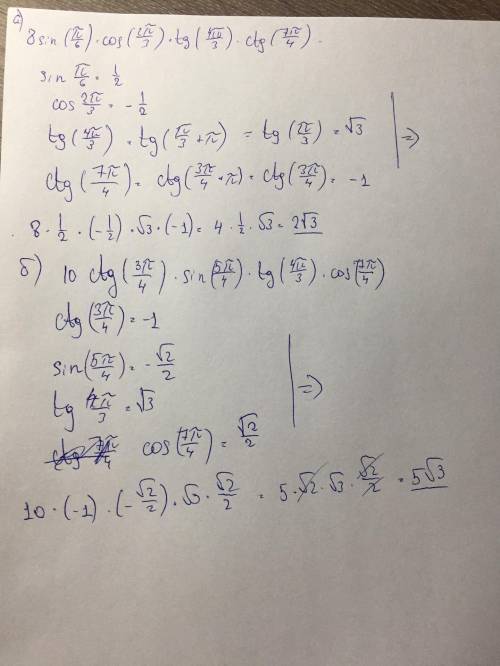 а)
8 sin(π/6) · cos(2π/3) · tg(4π/3) · ctg(7π/4).
sin π/6 = 1/2
cos 2π/3 = -1/2
tg(4π/3) = tg(π/3 + π) = tg(π/3) = √3
ctg(7π/4) = ctg(3π/4 + π) = ctg(3π/4) = -1
=>
8 · 1/2 · (-1/2) · √3 · (-1) = 4 · 1/2 · √3 = 2√3
б) 10 ctg(3π/4) · sin(5π/4) · tg(4π/3) · cos(7π/4)
ctg(3π/4) = -1
sin(5π/4) = -√2/2
tg 4π/3 = √3
cos(7π/4) = √2/2
=>
10 · (-1) · (-√2/2) · √3 · √2/2 = 5 · √2 · √3 · √2/2 = 5√3